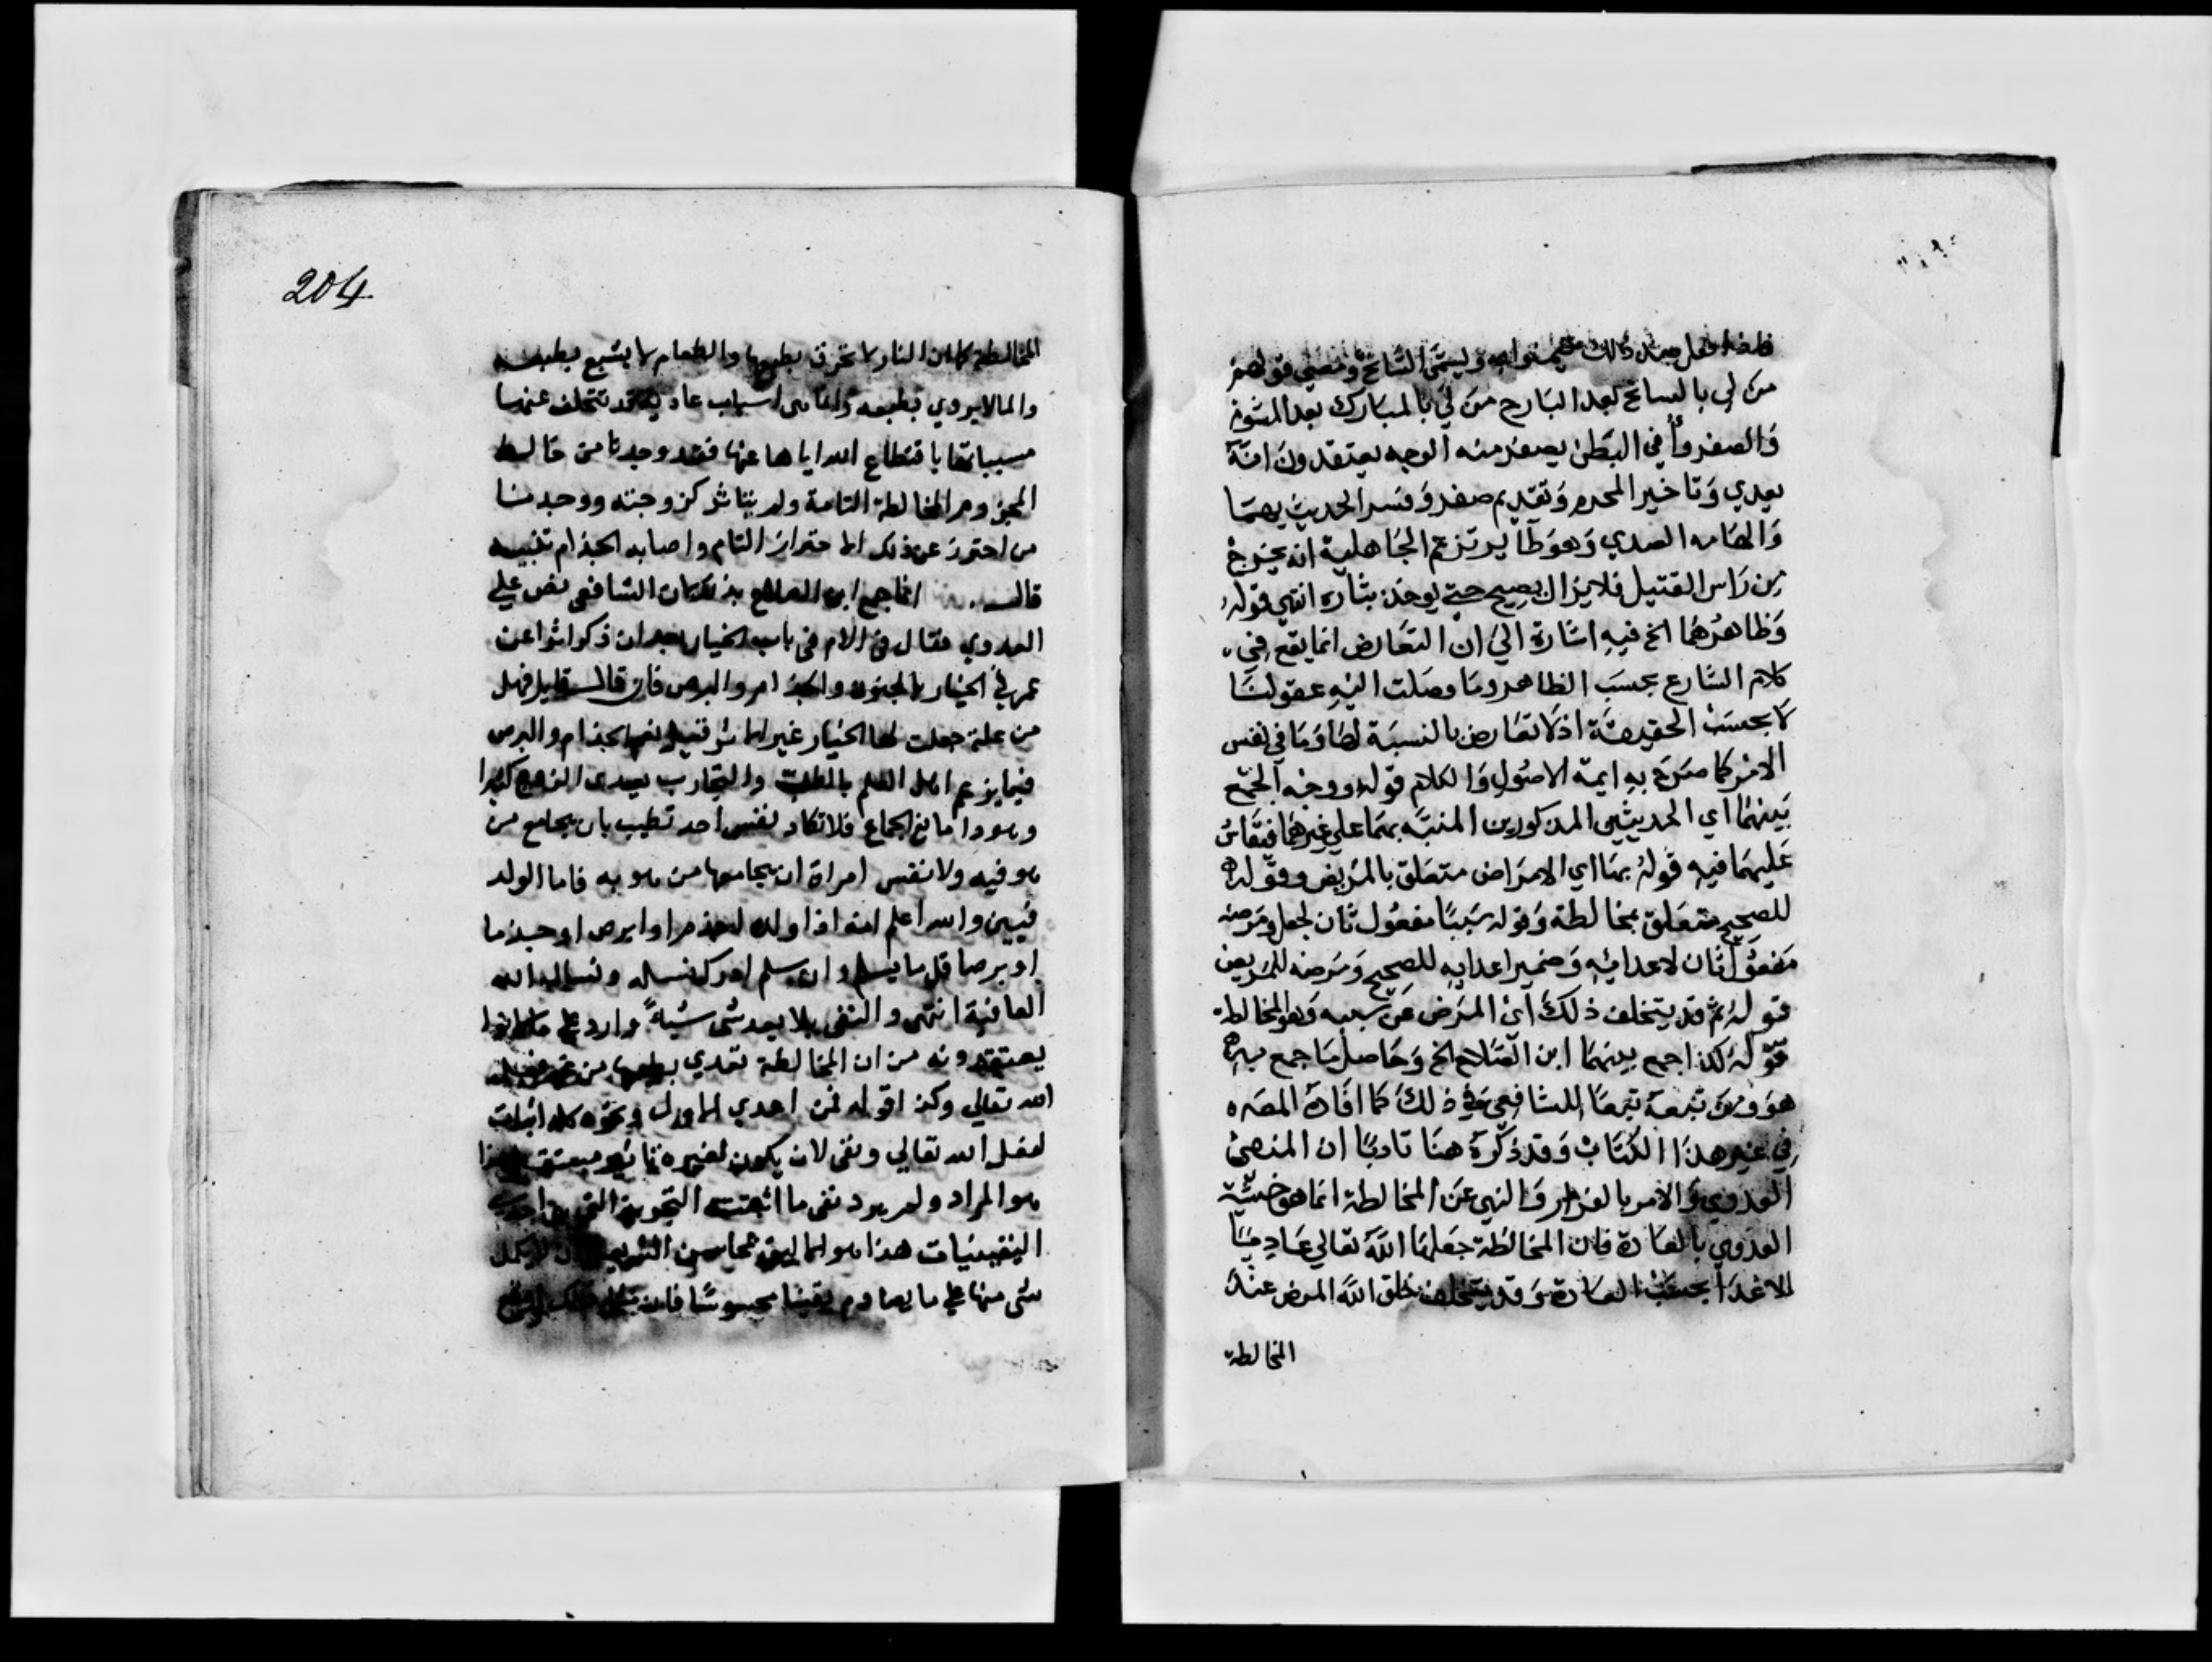 من لي بالسانح بعد البارح من لي بالمبارك بعد المشوم
والصفر دأ في البطن يصفر منه الوجه يعتقدون انه
يعدي وتاخير المحرم وتقديم صفر وفسر الحديث بهما
والهامه الصدي وهو طاير تزعم الجاهلية انه يخرج
من راس القتيل فلا يزال يصيح حتي يوخذ بثاره انتهي قوله
وظاهرهما الخ فيه اشارة الي ان التعارض انما يقع في
كلام الشارع بحسب الظاهر وما وصلت اليه عقولنا
لا بحسب الحقيقة اذ لا تعارض بالنسبة لها وما في نفس
الامر كما صرح به ايمة الاصول والكلام قوله ووجه الجمع
بينهما اي الحديثين المذكورين المنبه بهما علي غيرهما فيقاس
عليهما فيه قوله بها اي الامراض متعلق بالمريض وقوله
للصحيح متعلق بمخالطة وقوله سببا مفعول ثان لجعل ومرضه
مفعول ثان لاعدائه وضمير اعدايه للصحيح ومرضه للمريض
قوله ثم قد يتخلف ذلك اي المرض عن سببه وهو المخالطة
قوله كذا جمع بينهما ابن الصلاح الخ وحاصل ما جمع به
هو ومن تبعه تبعا للشافعي في ذلك كما افاده المصه
في غير هذا الكتاب وقد ذكره هنا تادبا ان المنفي
العدوي والامر بالفرار والنهي عن المخالطة انما هو خشية
العدوي بالعادة فان المخالطة جعلها الله تعالي عاديا
للاعدا بحسب العادة وقد يتخلف خلق الله المرض عند
المخالطة
204
المخالطة كما ان النار لا تحرق بطبعها والطعام لا يشبع بطبعه
والما لا يروي بطبعه وانما هي اسباب عادية قد تتخلف عنها
مسبباتها باقتطاع الله اياها عنها فقد وجدنا من خالط
المجزوم المخالطة التامة ولم يتاثر كزوجته ووجدنا
من احترز عن ذلك الاحتراز التام واصابه الجذام تنبيه
قال انما جمع ابن الصلاح بذلك لان الشافعي نص علي
العدوي فقال في الام في باب الخيار بعد ان ذكر اثرا عن
عمر في الخيار بالجنون والجذام والبرص فان قال قايل فهل
من علة جعلت لها الخيار غير الاثر قيل نعم الجذام والبرص
فيما يزعم اهل العلم بالطب والتجارب يعدي الزوج كثيرا
وهو دا مانع الجماع فلا تكاد نفس احد تطيب بان يجامع من
هو فيه ولا نفس امراة ان يجامعها من هو به فاما الولد
فيبين والله اعلم انه اذا ولده اجذم او ابرص او جذما
او برصا قل ما يسلم وان سلم ادرك نسله ونسال الله
العافية انتهي والنفي بلا يعدي شي شيأ وارد علي ما كانوا
يعتقدونه من ان المخالطة تعدي بطبعها من غير فعل
الله تعالي وكذا قوله فمن اعدي الاول ونحوه كله اثبات
لفعل الله تعالي ونفي لان يكون لغيره تاثير هذا
هو المراد ولم يرد نفي ما اثبتته التجربة التي هي احدي
اليقينيات هذا هو اللايق بمحاسن الشريعة لا يحمل
شي منها علي ما يصادم يقينا محسوسا فان